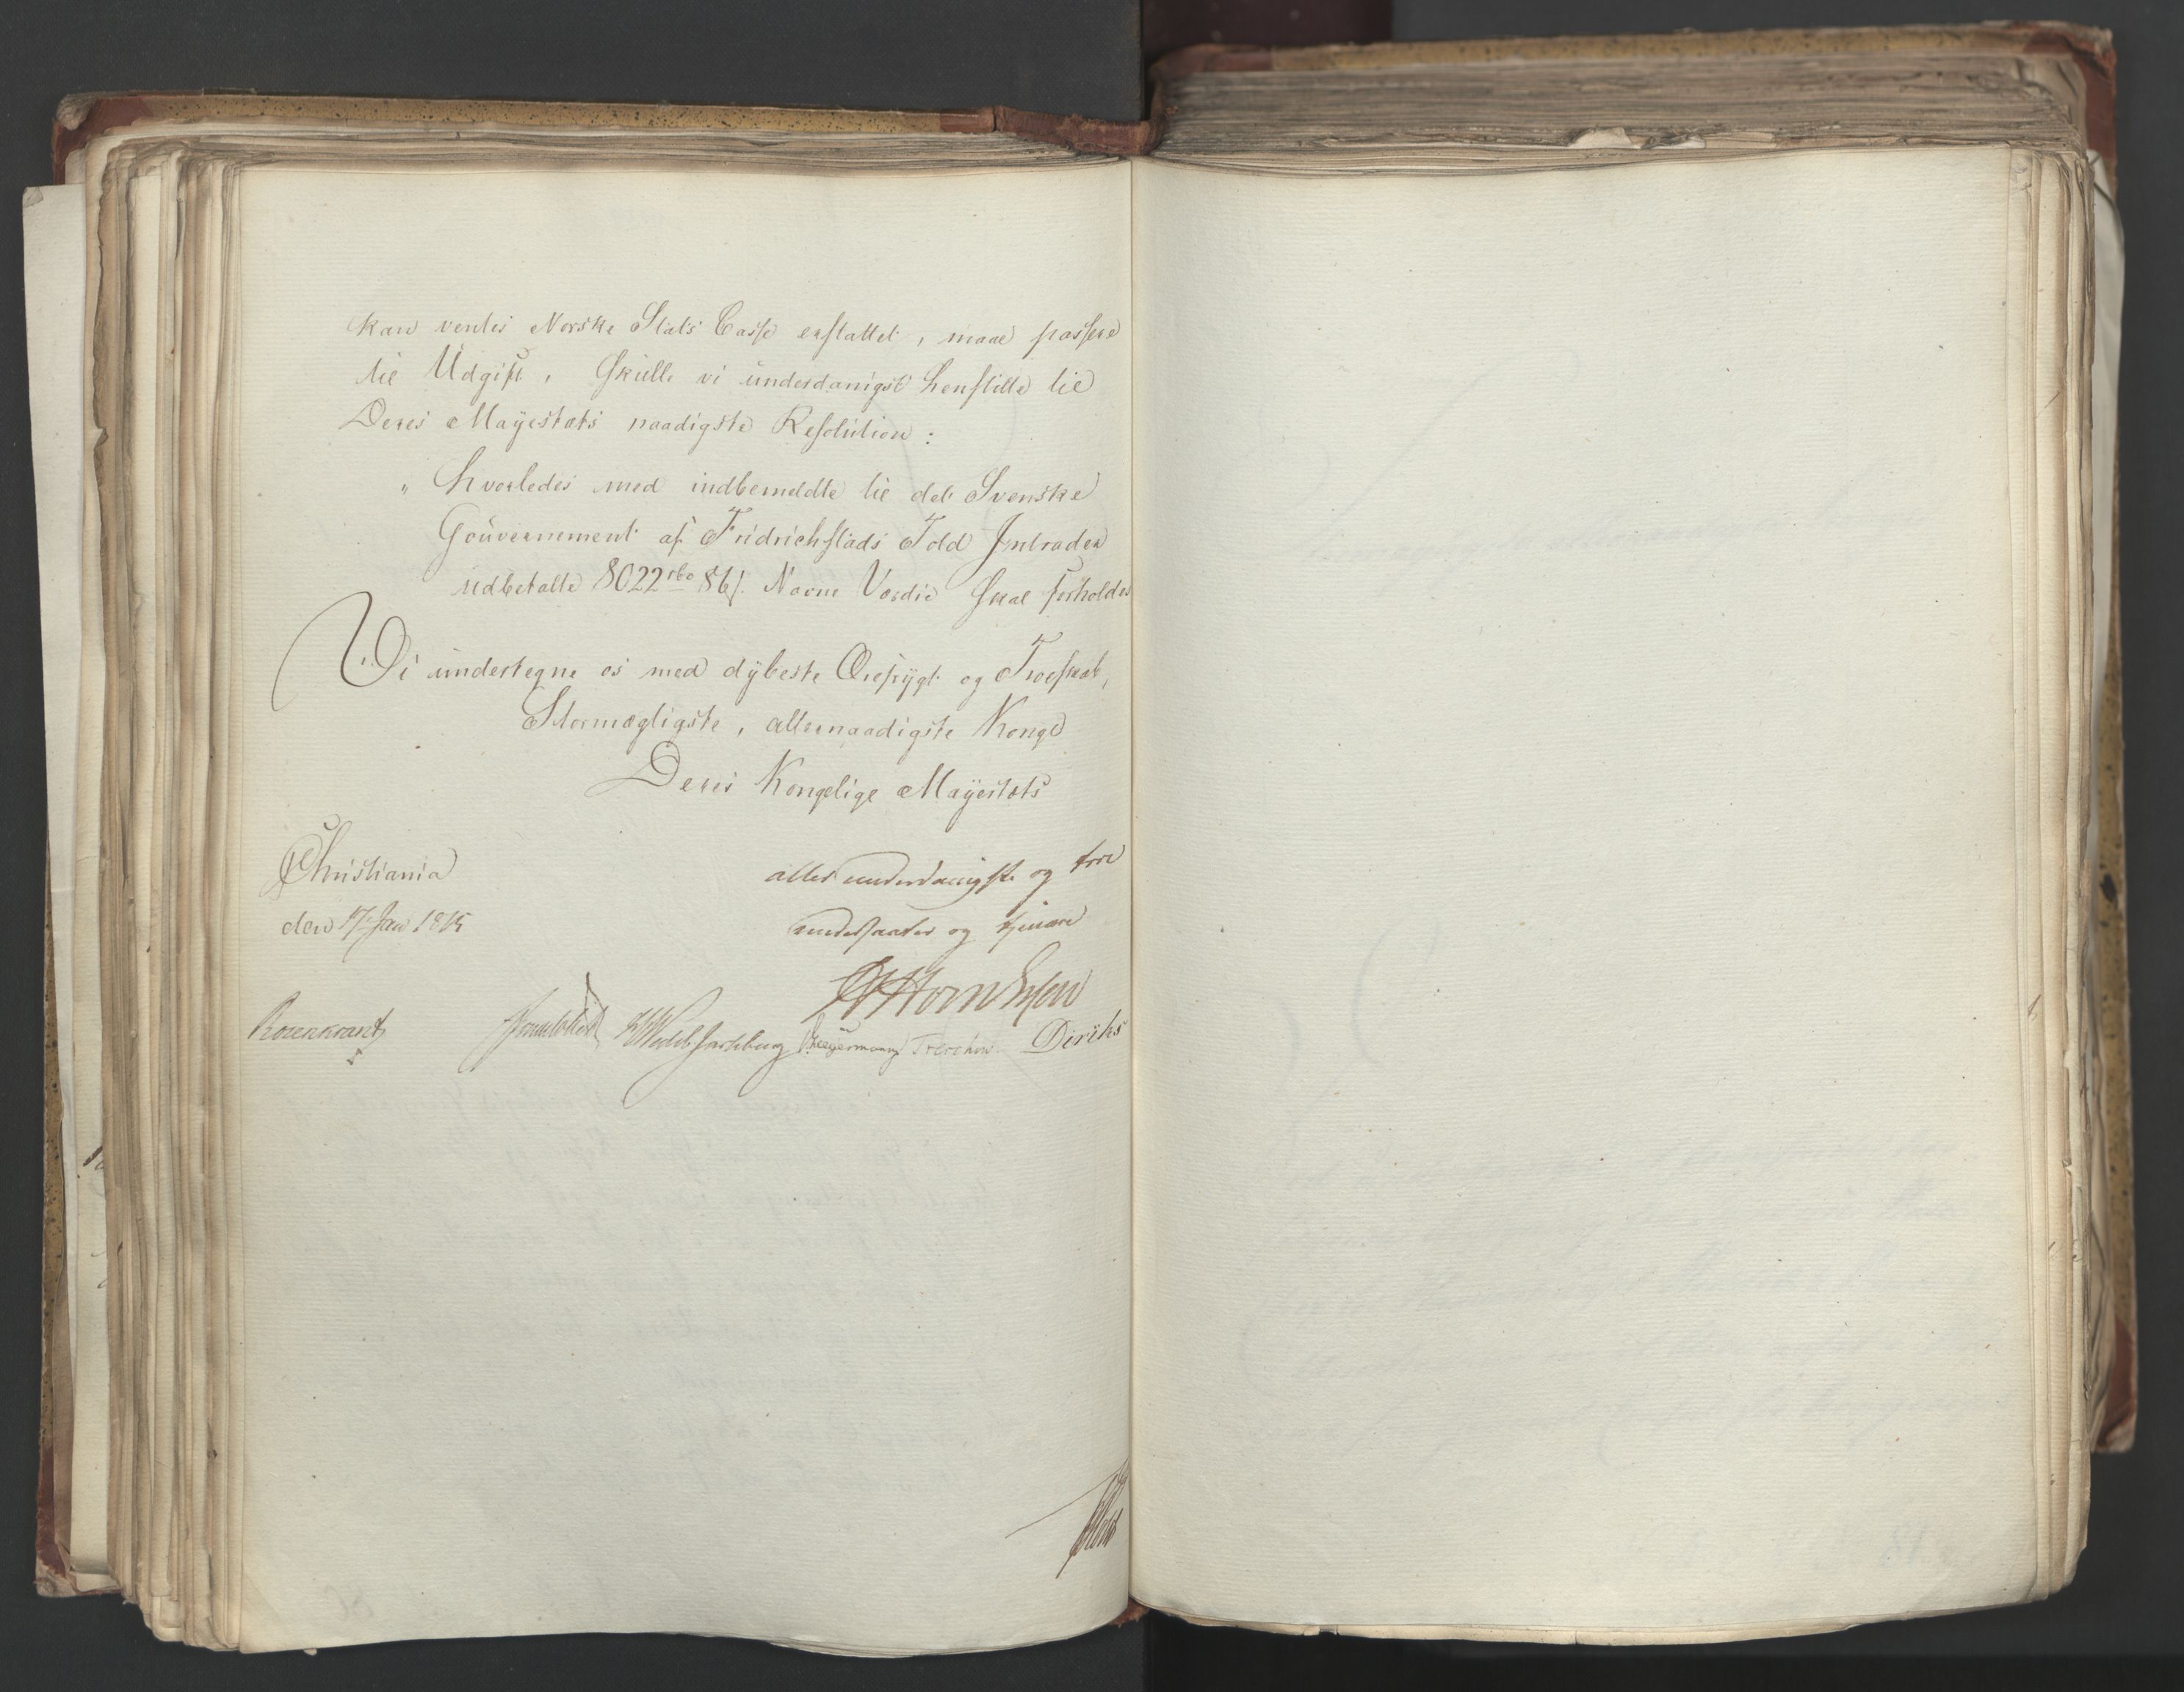 kan ventes Norske Stats Casse erstattet, maae passere
til Udgift, skulle vi underdanigst henstille til
Deres Mayestæts naadigste Resolution:
" hvorledes med indbemeldte til det Svenske
Gouvernement af Fridrichstads Told Intrader
udbetalte 8022 rbd 86 s. Navne Værdie skal forholdes
Vi undertegne os med dybeste Ærefrygt og Troeskab,
Stormægtigste, allernaadigste Konge
Deres Kongelige Mayestæts
Christiania
den 17 Jan 1815
allerunderdanigste og troe
undersaatter og tjenere
Rosenkrantz
Sommerhielm
Wedel Jarlsberg
Hegermann
Treschow
Diriks